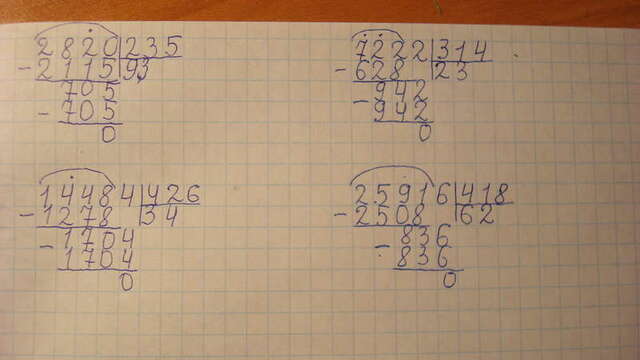 2820|235
- 2115|93
705
- 705
0
7222|314
- 628|23
- 942
942
0
14484|426
- 1278|34
- 1704
1704
0
25916|418
- 2508|62
- 836
836
0